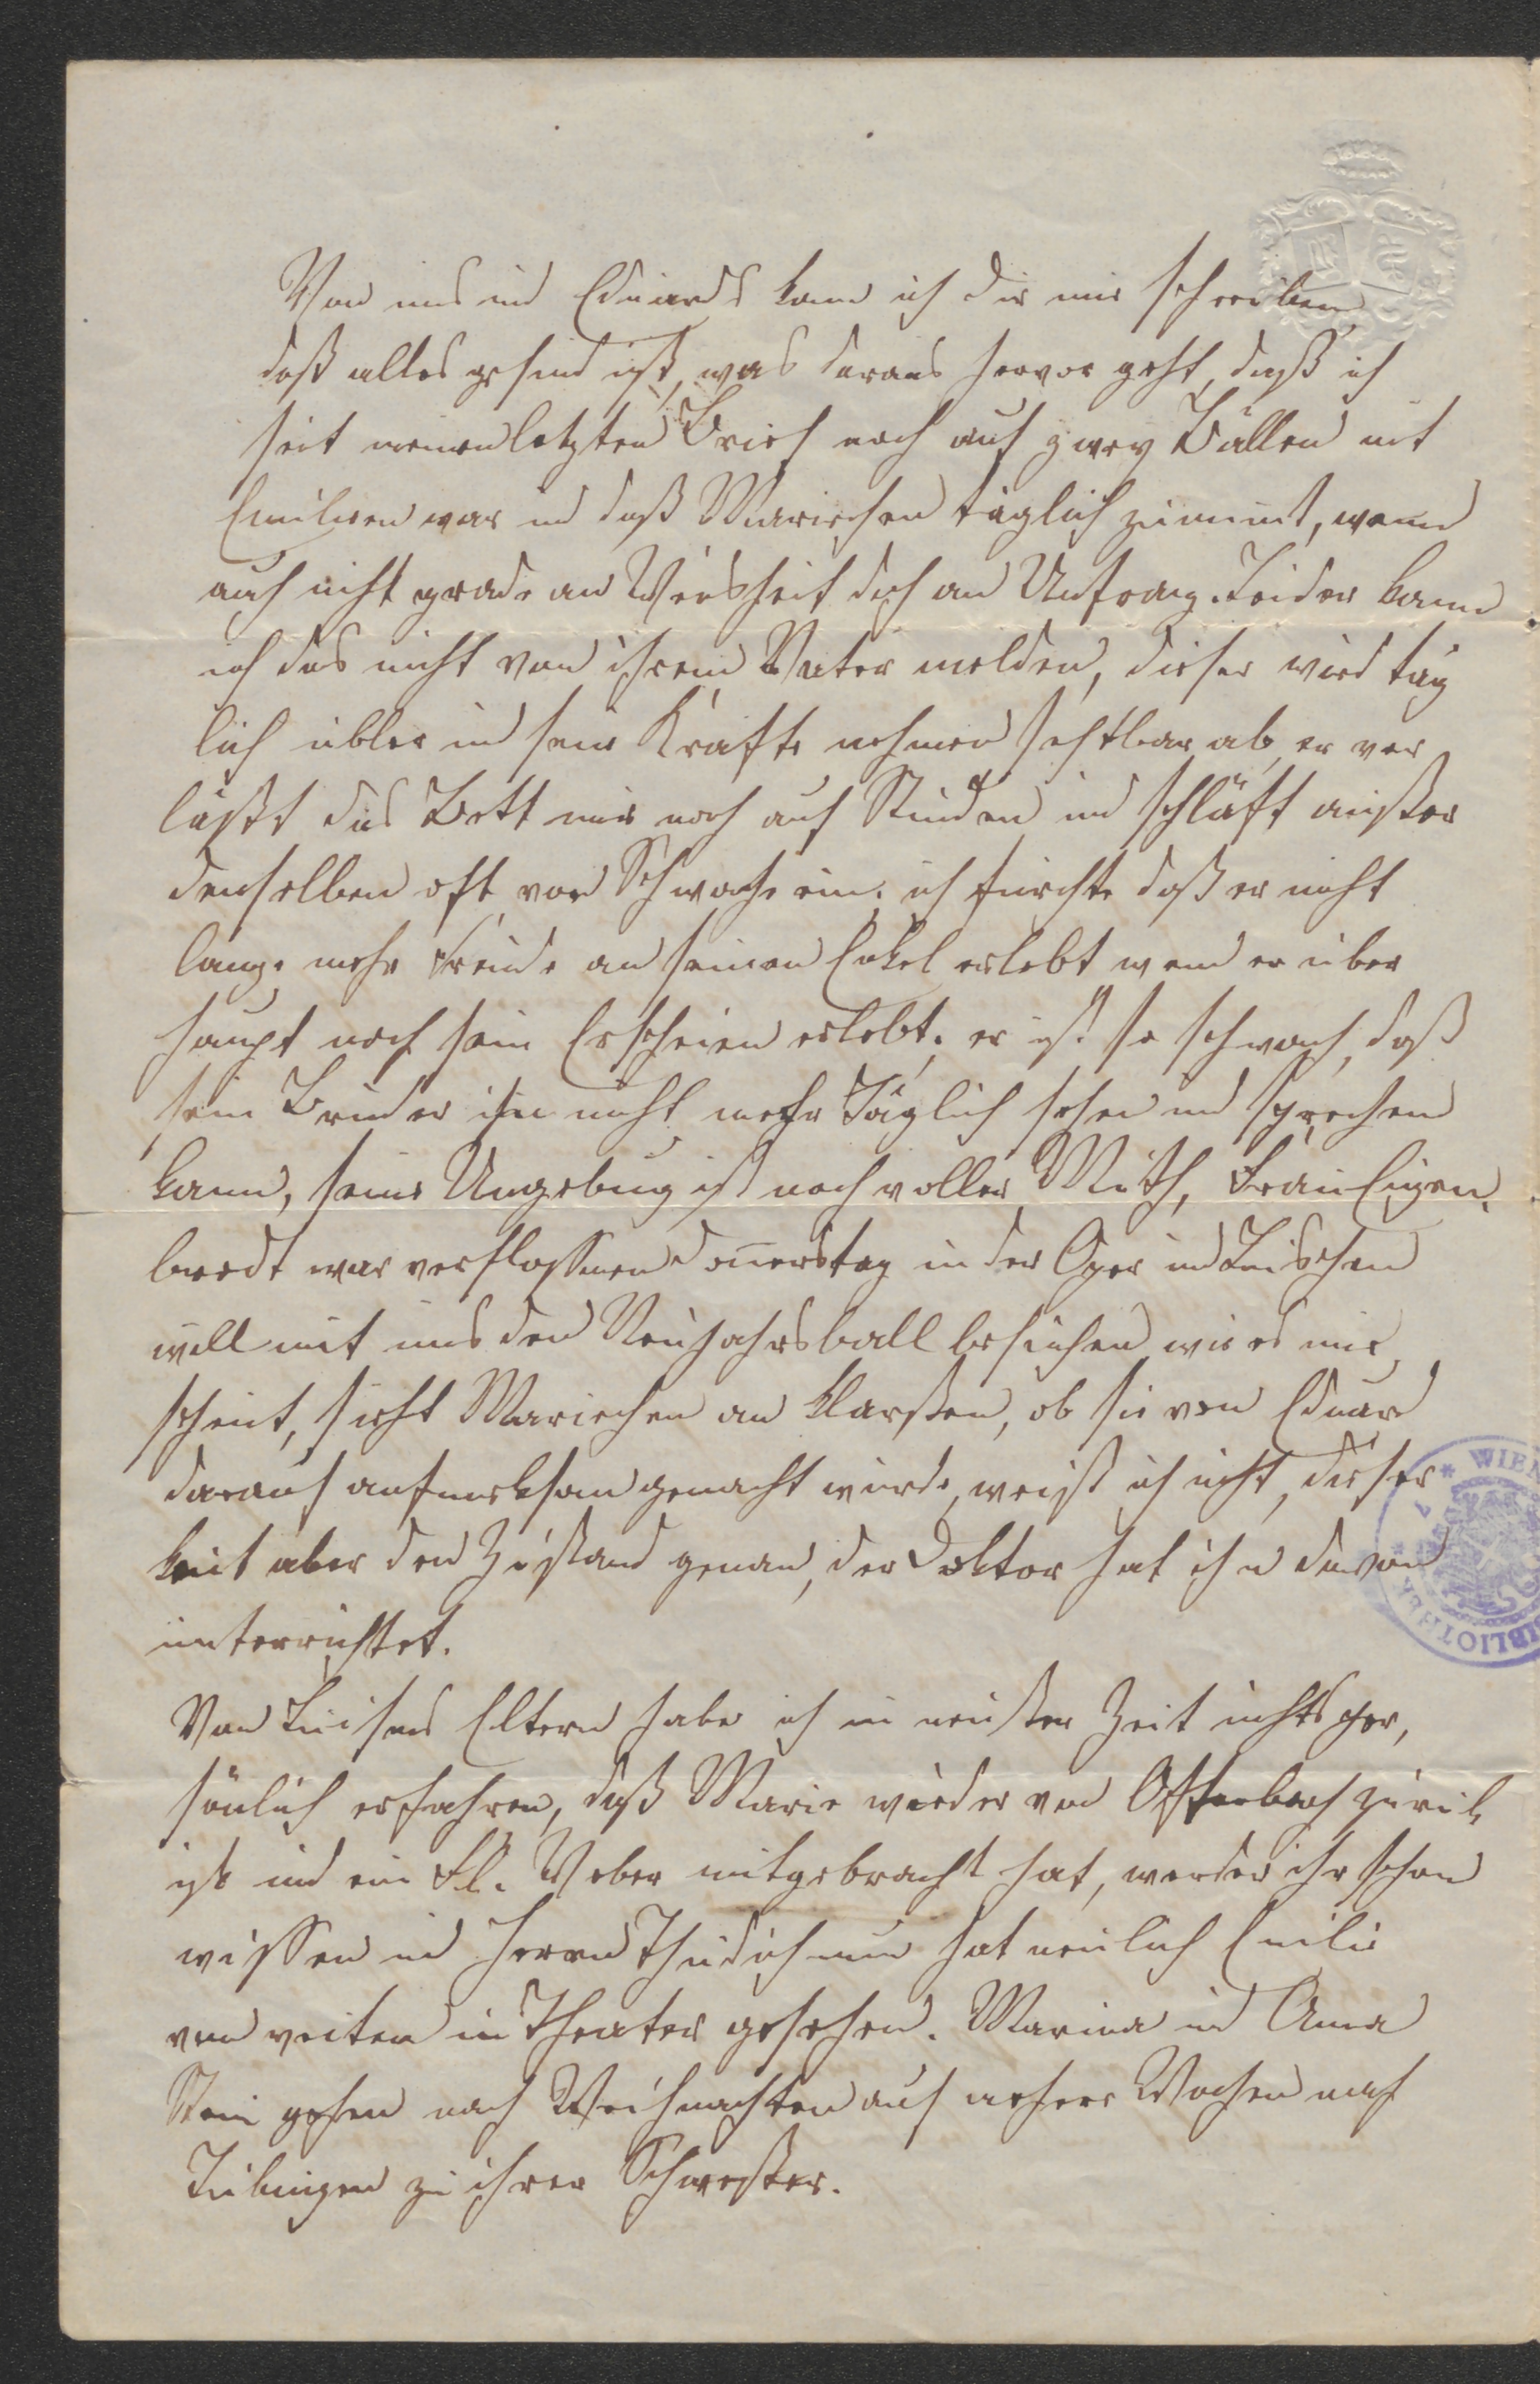 Von uns und Eduards kann ich dir nur schreiben,
daß alles gesund ist, was daraus hervor geht, daß ich
seit meinen letzten Brief noch auf zwey Bällen mit
Emilien war und daß Mariechen täglich zunimt, wenn
auch nicht grade an Weisheit doch an Umfang. Leider kann
ich das nicht von ihrem Vater melden, dieser wird täg
lich übler und sein Kräfte nehmen sichtbar ab, er ver
läßt das Bett nur noch auf Stunden und schläft außer
denselben oft vor Schwache ein. ich fürchte daß er nicht
lange mehr Freude an seinen Enkel erlebt wenn er über
haupt noch sein Erscheinen erlebt. er ist so schwach, daß
sein Bruder ihn nicht mehr Täglich sehen und sprechen
kann, seine Umgebung ist noch voller Muth, Frau Eigen,
brodt war verflossenen Donnerstag in der Oper und Luischen
will mit uns den Neujahrsball besuchen, wie es mir
scheint, sieht Mariechen am klarsten, ob sie von Eduard
darauf aufmerksam gemacht wurde, weiß ich nicht, dieser
kent aber den Zustand genau, der Doktor hat ihn davon
unterrichtet.
Von Luisens Eltern habe ich in neuster Zeit nichts per,
sönlich erfahren, daß Marie wieder von Offenbach zurük
ist und ein Fl. Weber mitgebracht hat, werdet ihr schon
wissen und Herrn Thudichum hat neulich Emilie
von weiten im Theater gesehen. Marina und Anna
Stein gehen nach Weihnachten auf mehrere Wochen nach
Tübingen zu ihrer Schwester.
WIEN
BIBLIOTHEK